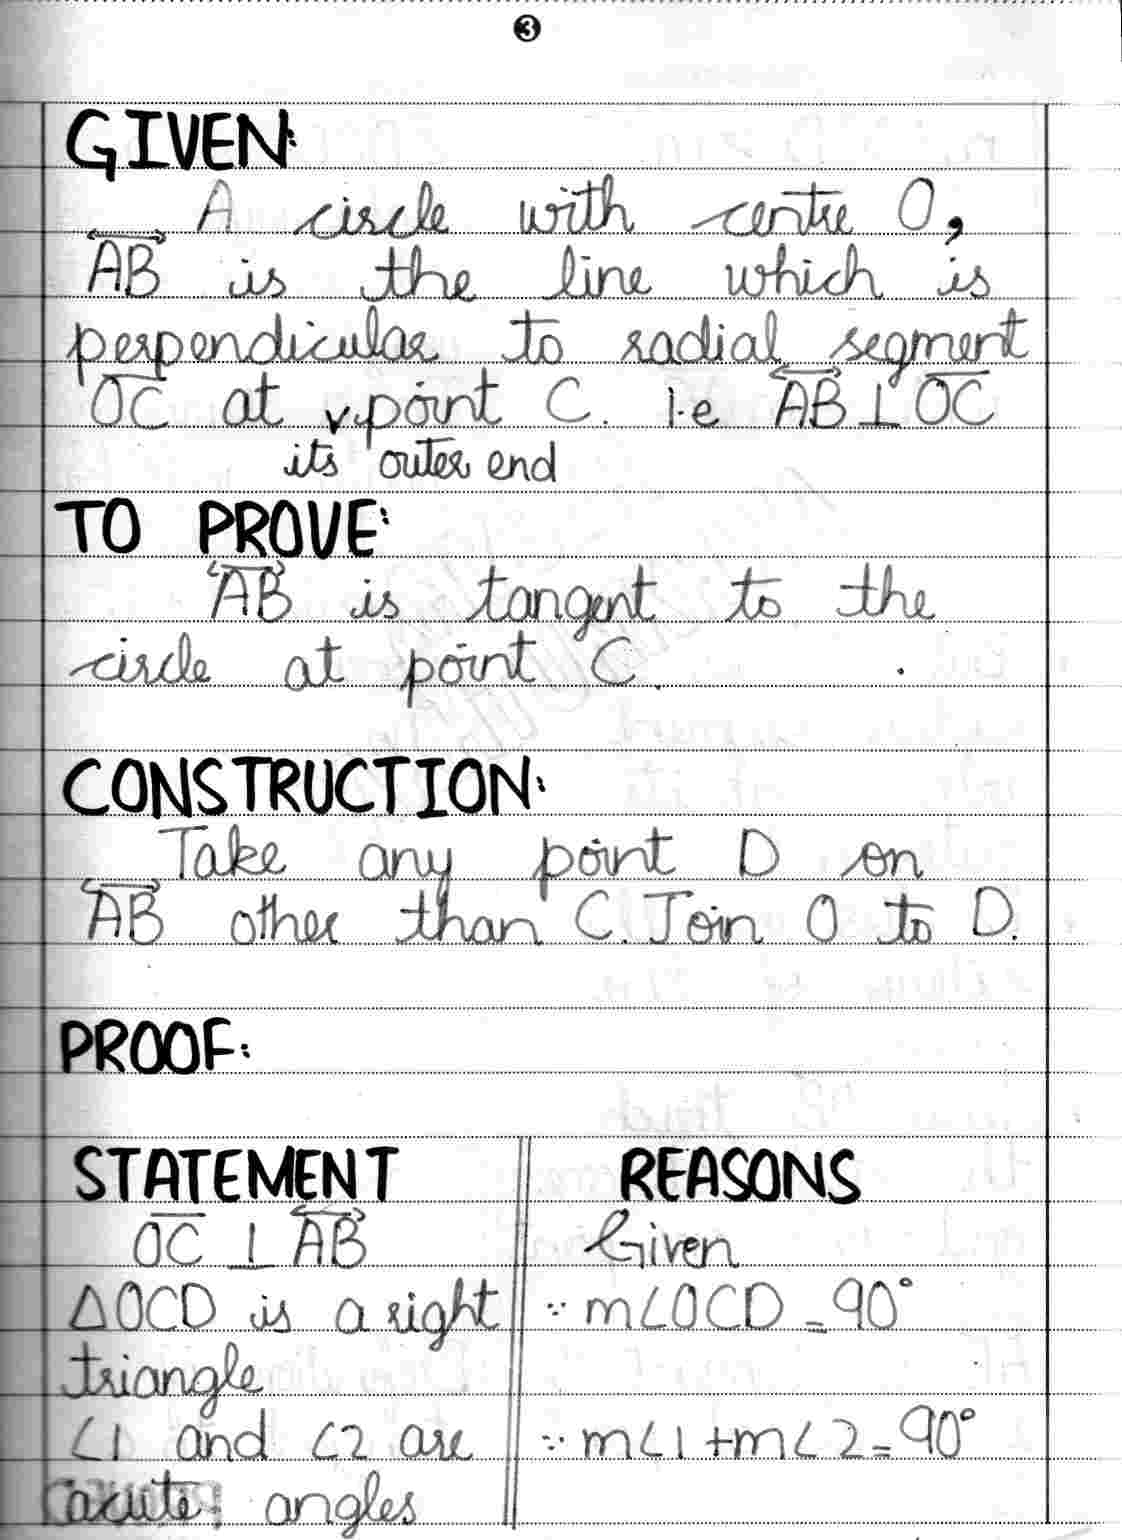 3
GIVEN:
A circle with centre O,
AB is the line which is
perpendicular to radial segment
OC at point C. i.e AB ⊥ OC
its outer end
TO PROVE:
AB is tangent to the
circle at point C.
CONSTRUCTION:
Take any point D on
AB other than C. Join O to D.
PROOF:
STATEMENT REASONS
OC ⊥ AB Given
△OCD is a right ∵ m∠OCD = 90°
triangle
∠1 and ∠2 are ∵ m∠1+m∠2=90°
acute angles